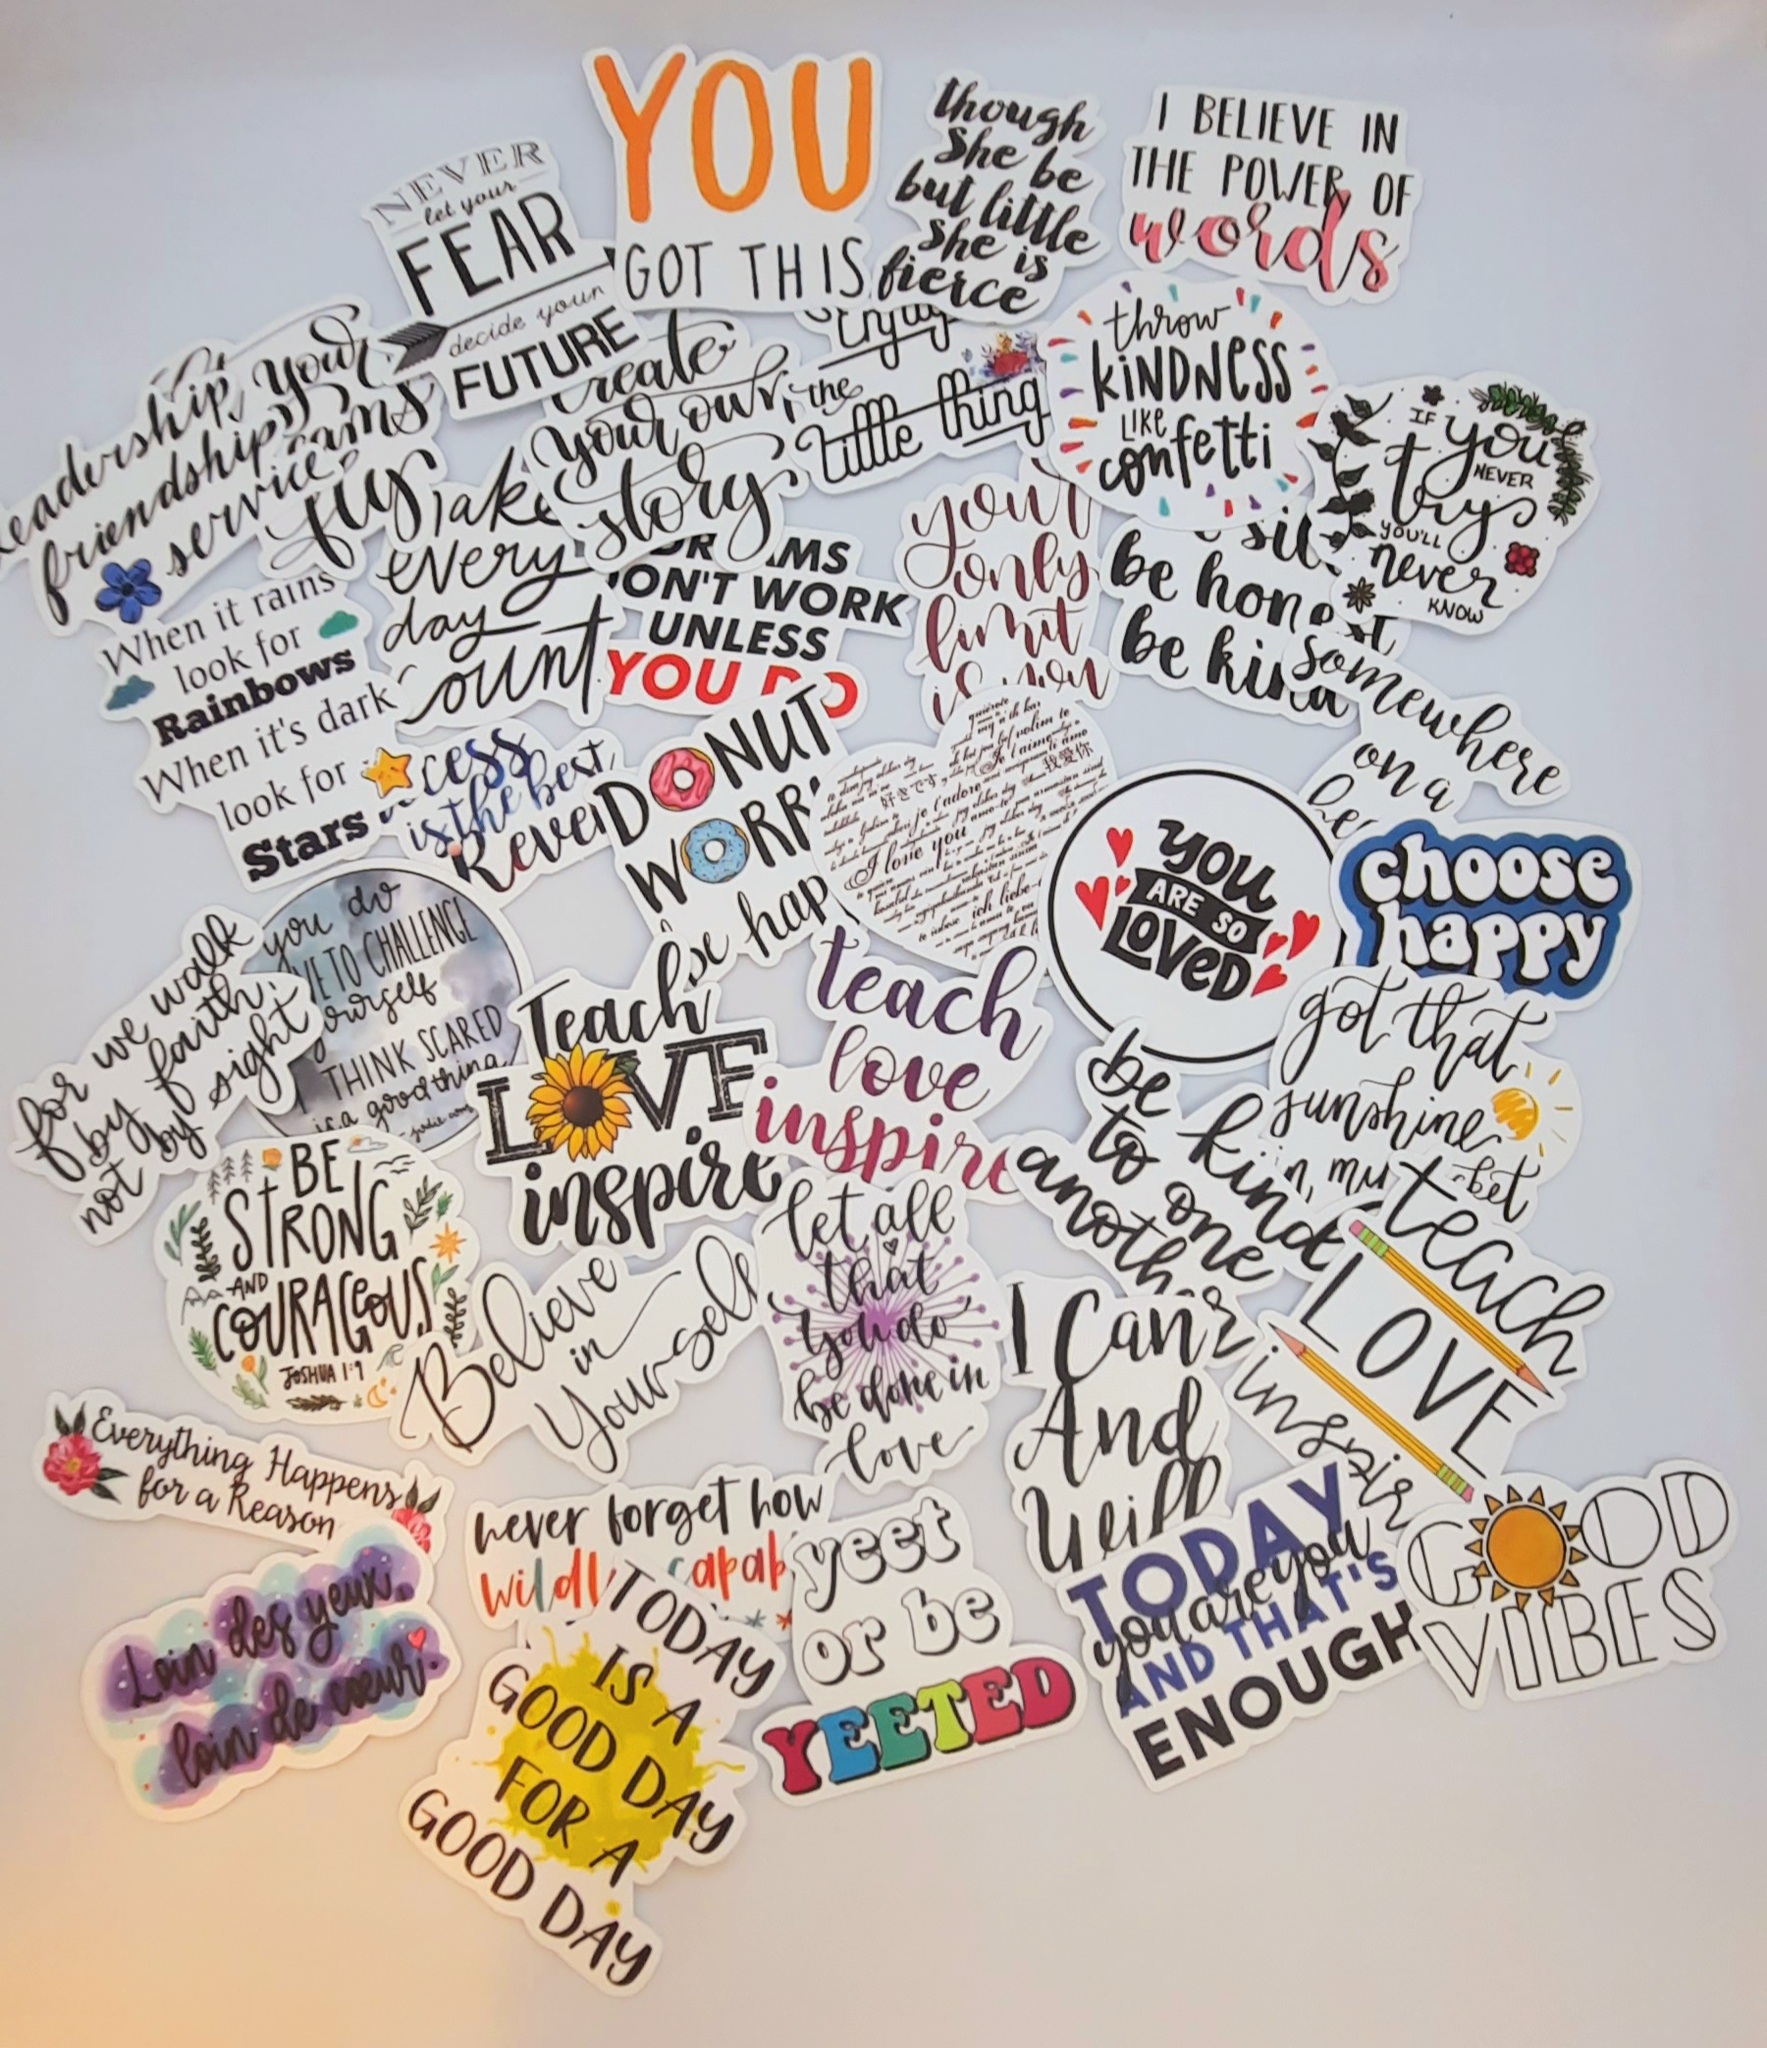 YOU
GOT THIS
though
she be
but little
she is
fierce
I BELIEVE IN
THE POWER OF
words
NEVER
let your
FEAR
decide your
FUTURE
Leadership,
friendship,
service
your
fly
create
your own
story
the
little thing
throw
KINDNESS
LIKE
confetti
IF
you
NEVER
try
YOU'LL
never
KNOW
When it rains
look for
Rainbows
When it's dark
look for
Stars
every
day
count
ON'T WORK
UNLESS
YOU DO
your
only
limit
be honest
be kind
somewhere
on a
is the best
DONUT
WORR
be hap
好きです
je t'adore
我爱你
I love you
YOU
ARE SO
LOVED
choose
happy
for we walk
by faith,
not by sight
you do
VE TO CHALLENGE
yourself
I THINK SCARED
is a good thing
Teach
LOVE
inspire
teach
love
inspire
got that
sunshine
in my
be
kind
to one
another
BE
STRONG
AND
COURAGEOUS
JOSHUA 1:9
Believe
in
Yourself
let all
that
you do
be done in
love
teach
LOVE
inspire
I Can
And
Will
Everything Happens
for a Reason
never forget how
wildly capab
yeet
or be
YEETED
TODAY
you are you
AND THAT'S
ENOUGH
GOOD
VIBES
Loin des yeux,
loin de cœur.
TODAY
IS A
GOOD DAY
FOR A
GOOD DAY